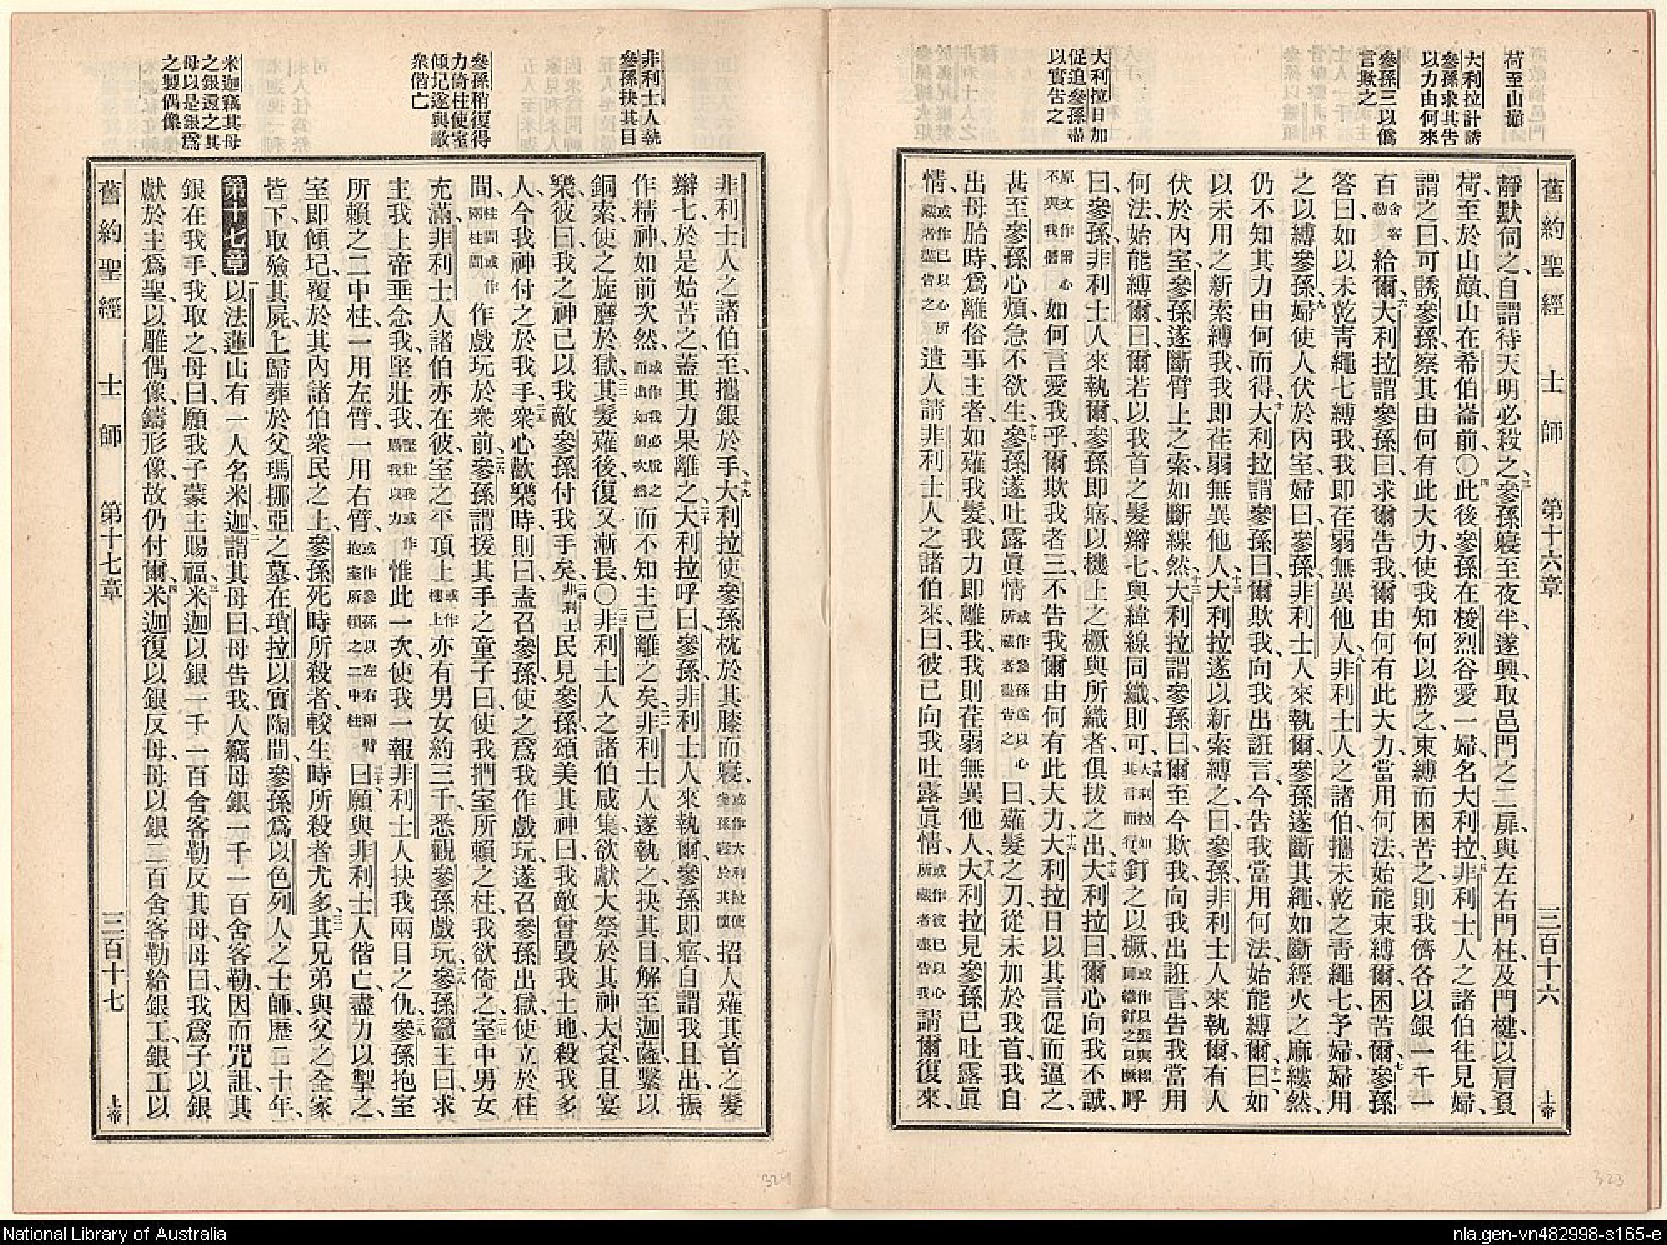 荷至山巔
大利拉計誘
參孫求其告
以力由何來
參孫三以僞
言欺之
大利拉日加
促迫參孫遂
以實告之
舊約聖經 士師 第十六章 三百十六 上帝
靜默伺之自謂待天明必殺之參孫寢至夜半遂興取邑門之二扉與左右門柱及門楗以肩負
荷至於山巔山在希伯崙前〇此後參孫在梭烈谷愛一婦名大利拉非利士人之諸伯往見婦
謂之曰可誘參孫察其由何有此大力使我知何以勝之束縛而困苦之則我儕各以銀一千一
百舍客勒給爾大利拉謂參孫曰求爾告我爾由何有此大力當用何法始能束縛爾困苦爾參孫
答曰如以未乾靑繩七縛我我卽荏弱無異他人非利士人之諸伯攜未乾之靑繩七予婦婦用
之以縛參孫婦使人伏於內室婦曰參孫非利士人來執爾參孫遂斷其繩如斷經火之麻縷然
仍不知其力由何而得大利拉謂參孫曰爾欺我向我出誑言今告我當用何法始能縛爾曰如
以未用之新索縛我我卽荏弱無異他人大利拉遂以新索縛之曰參孫非利士人來執爾有人
伏於內室參孫遂斷臂上之索如斷線然大利拉謂參孫曰爾至今欺我向我出誑言告我當用
何法始能縛爾曰爾若以我首之髮辮七與緯線同織則可大利拉如其言而行釘之以橛 呼
曰參孫非利士人來執爾參孫卽寤以機上之橛與所織者俱拔之出大利拉曰爾心向我不誠
原文作爾心不與我偕如何言愛我乎爾欺我者三不告我爾由何有此大力大利拉日以其言促而逼之
甚至參孫心煩急不欲生參孫遂吐露眞情或作參孫遂以心所藏者盡告之曰薙髮之刀從未加於我首我自
出母胎時爲離俗事主者如薙我髮我力卽離我我則荏弱無異他人大利拉見參孫已吐露眞
情或作已以心所藏者盡告之遣人請非利士人之諸伯來曰彼已向我吐露眞情或作彼已以心所藏者盡告我請爾復來
非利士人執
參孫抉其目
參孫稍復得
力倚柱使室
傾圮遂與敵
衆偕亡
米迦竊其母
之銀還之其
母以是銀爲
之製偶像
非利士人之諸伯至攜銀於手大利拉使參孫枕於其膝而寢或作大利拉使參孫寢於其懷招人薙其首之髮
辮七於是始苦之蓋其力果離之大利拉呼曰參孫非利士人來執爾參孫卽寤自謂我且出振
作精神如前次然或作我必脫之而出如前次然而不知主已離之矣非利士人遂執之抉其目解至迦薩繫以
銅索使之旋磨於獄其髮薙後復又漸長〇非利士人之諸伯咸集欲獻大祭於其神大袞且宴
樂彼曰我之神已以我敵參孫付我手矣非利士民見參孫頌美其神曰我敵曾毀我土地殺我多
人今我神付之於我手衆心歡樂時則曰盍召參孫使之爲我作戲玩遂召參孫出獄使立於柱
間柱間或作兩柱間作戲玩於衆前參孫謂援其手之童子曰使我捫室所賴之柱我欲倚之室中男女
充滿非利士人諸伯亦在彼室之平頂上或作樓上亦有男女約三千悉觀參孫戲玩參孫籲主曰求
主我上帝垂念我堅壯我堅壯我或作賜我以力惟此一次使我一報非利士人抉我兩目之仇參孫抱室
所賴之二中柱一用左臂一用右臂或作參孫以左右兩臂抱室所賴之二中柱曰願與非利士人偕亡盡力以掣之
室卽傾圮覆於其內諸伯衆民之上參孫死時所殺者較生時所殺者尤多其兄弟與父之全家
皆下取殮其屍上歸葬於父瑪挪亞之墓在瑣拉以實陶間參孫爲以色列人之士師歷二十年
第十七章以法蓮山有一人名米迦謂其母曰母告我人竊母銀一千一百舍客勒因而咒詛其
銀在我手我取之母曰願我子蒙主賜福米迦以銀一千一百舍客勒反其母母曰我爲子以銀
獻於主爲聖以雕偶像鑄形像故仍付爾米迦復以銀反母母以銀二百舍客勒給銀工銀工以
舊約聖經 士師 第十七章 三百十七 上帝
324
323
National Library of Australia
nla.gen-vn482998-s165-e